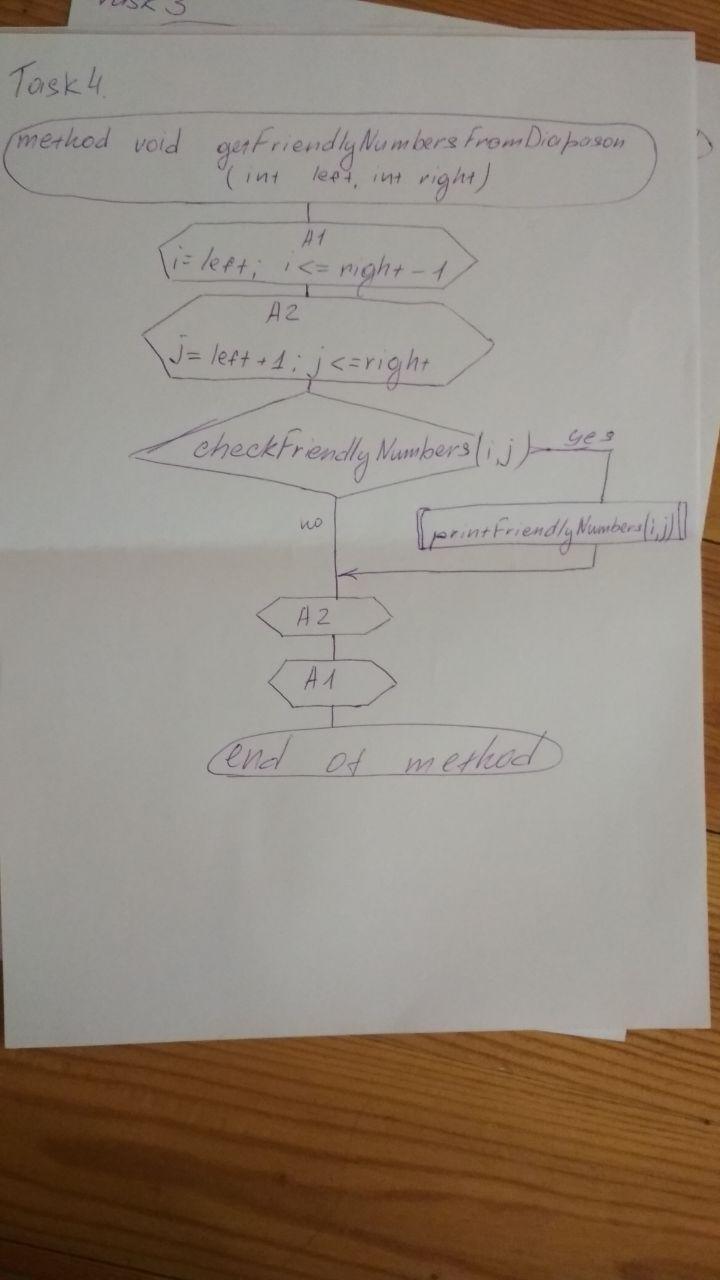 Task 3
Task 4.
method void getFriendlyNumbersFromDiapason
(int left, int right)
A1
i=left; i<=right-1
A2
j=left+1; j<=right
checkFriendlyNumbers(i,j)
yes
no
printFriendlyNumbers(i,j)
A2
A1
end of method